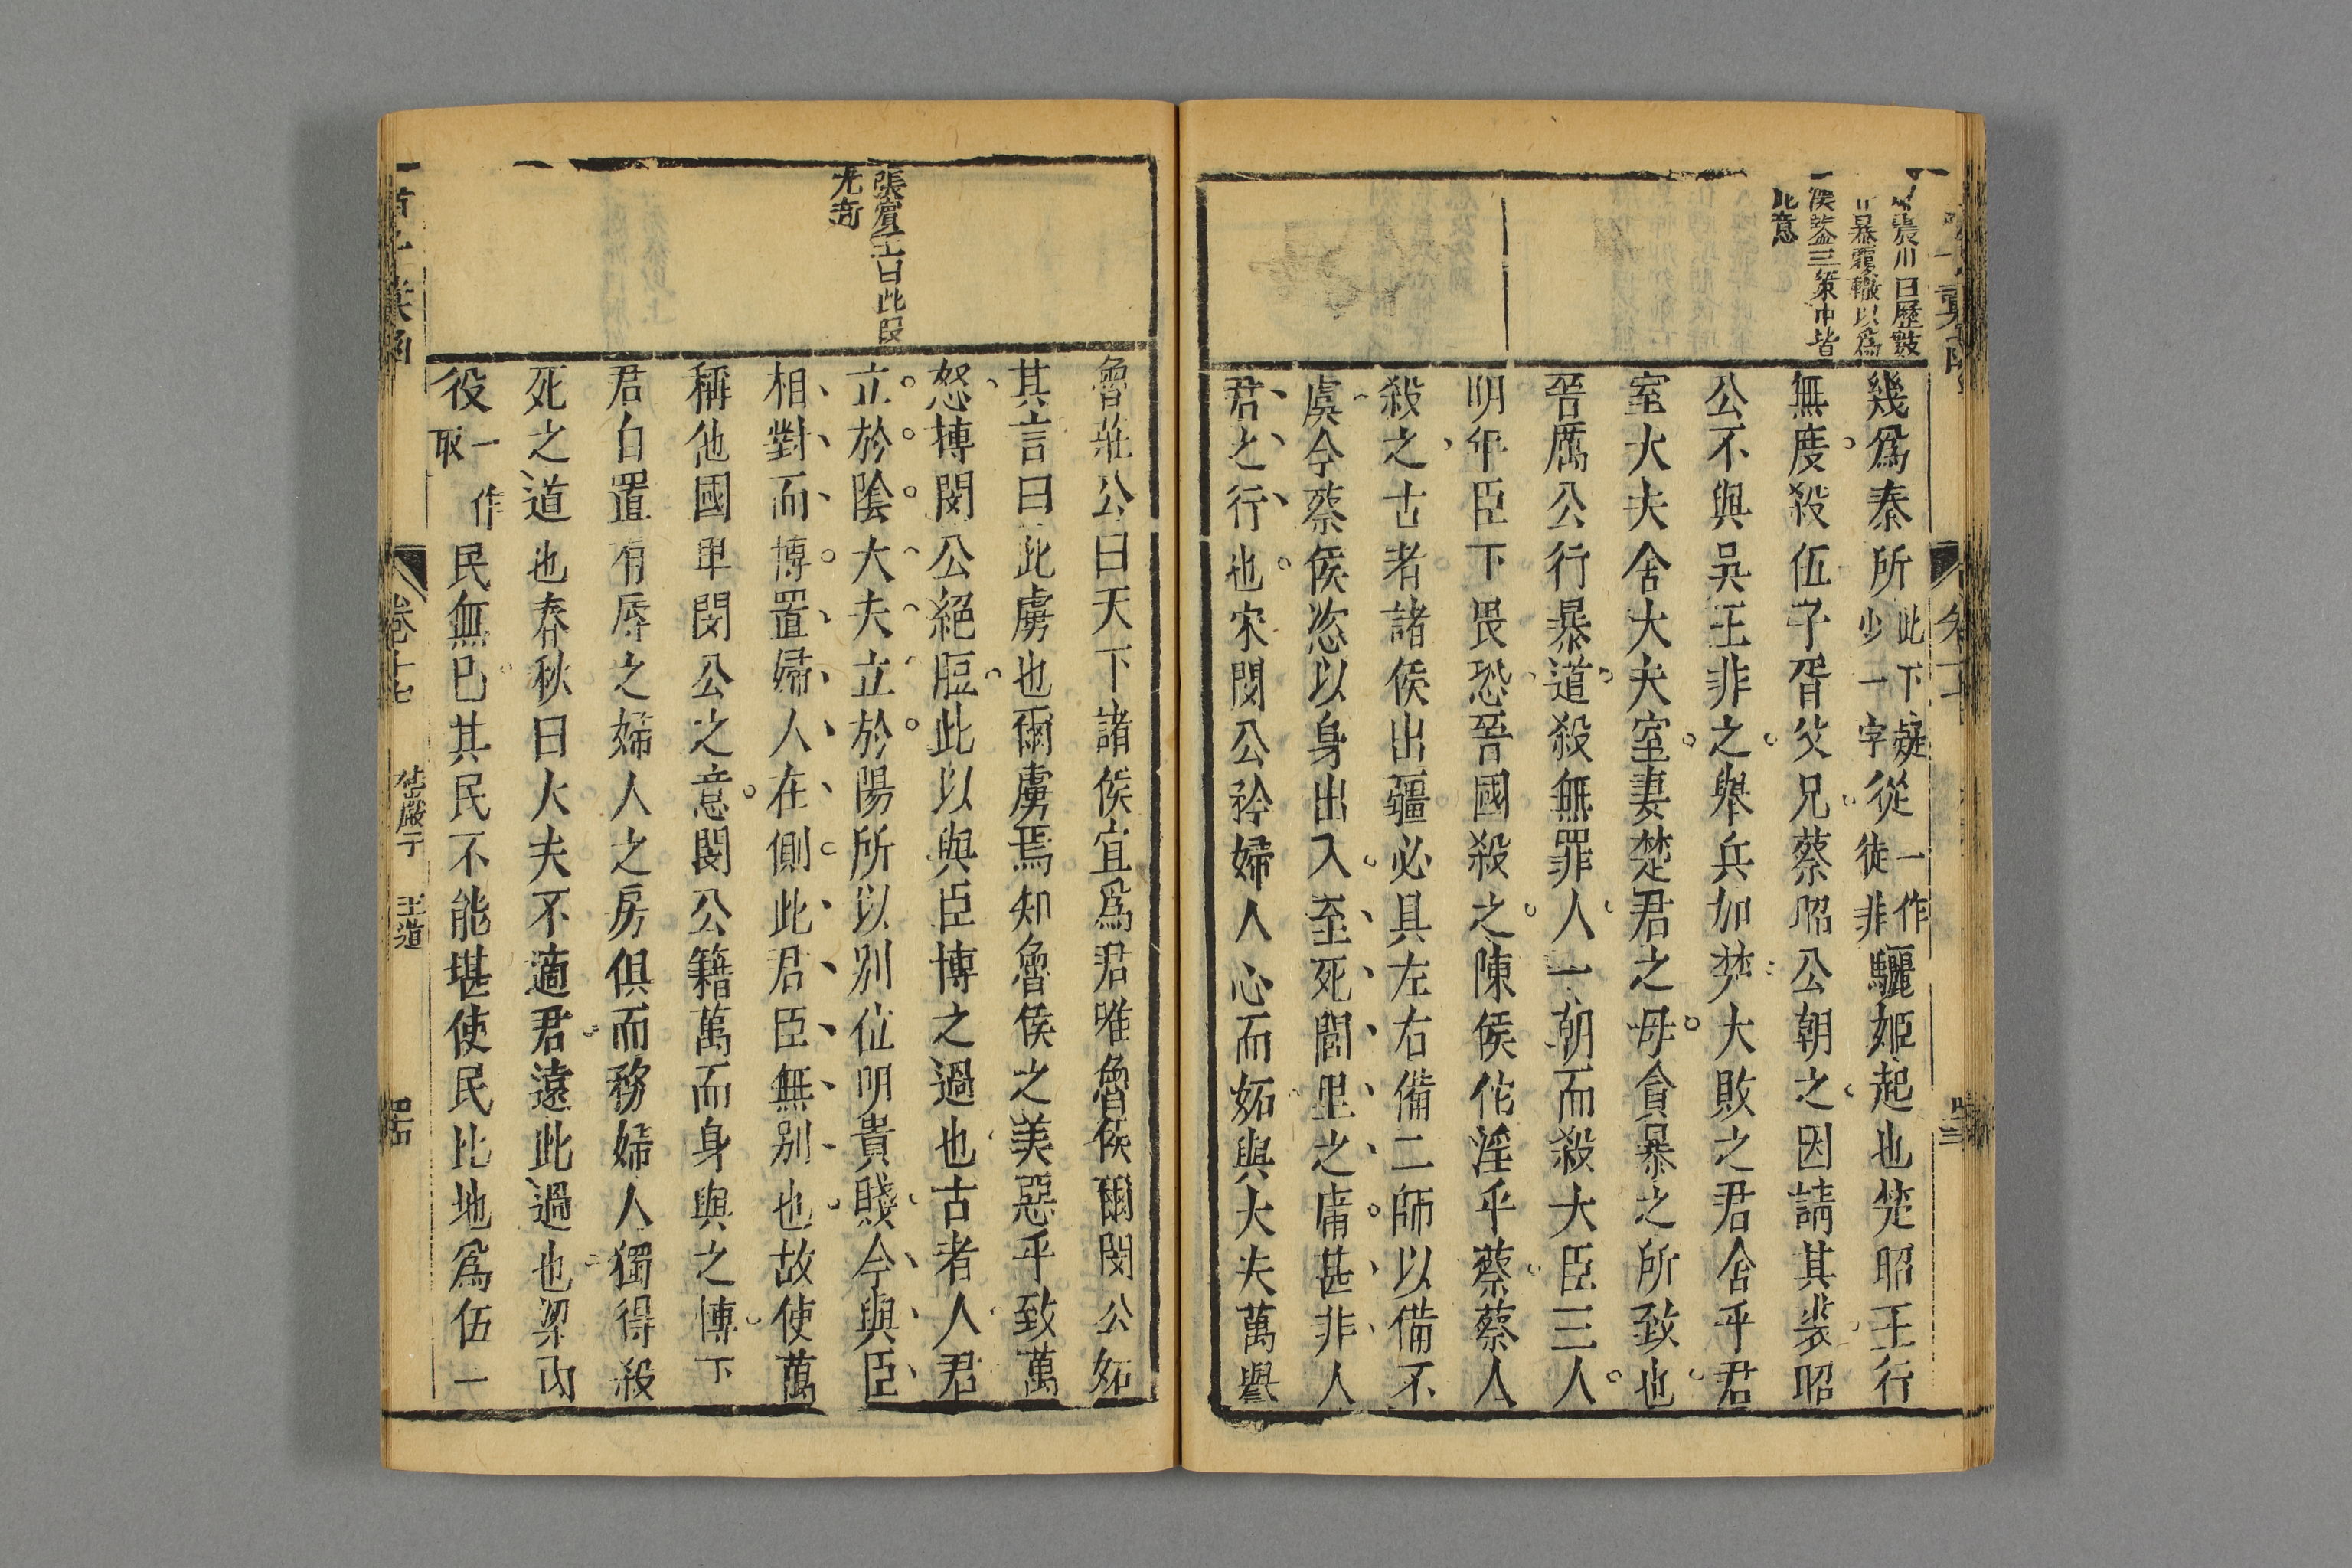 張川曰歷數
暴覆轍以爲
侯鍳三策中皆
此意
幾爲泰所此下疑少一字從一作徒非驪姬起也楚昭王行
無度殺伍子胥父兄蔡昭公朝之因請其裘昭
公不與吳王非之舉兵加楚大敗之君舍乎君
室大夫舍大夫室妻楚君之母貪暴之所致也
晉厲公行暴道殺無罪人一朝而殺大臣三人
明年臣下畏恐晉國殺之陳侯佗淫乎蔡蔡人
殺之古者諸侯出疆必具左右備二師以備不
虞今蔡侯恣以身出入至死閭里之庸甚非人
君之行也宋閔公矜婦人心而妬與大夫萬譽
張賓王曰此段
尤奇
魯莊公曰天下諸侯宜爲君唯魯侯爾閔公妬
其言曰此虜也爾虜焉知魯侯之美惡乎致萬
怒搏閔公絕脰此以與臣博之過也古者人君
立於陰大夫立於陽所以別位明貴賤今與臣
相對而博置婦人在側此君臣無別也故使萬
稱他國卑閔公之意閔公籍萬而身與之博下
君自置有辱之婦人之房俱而務婦人獨得殺
死之道也春秋曰大夫不適君遠此過也梁內
役一作取民無已其民不能堪使民比地爲伍一
卷十七
桂巖子 王道